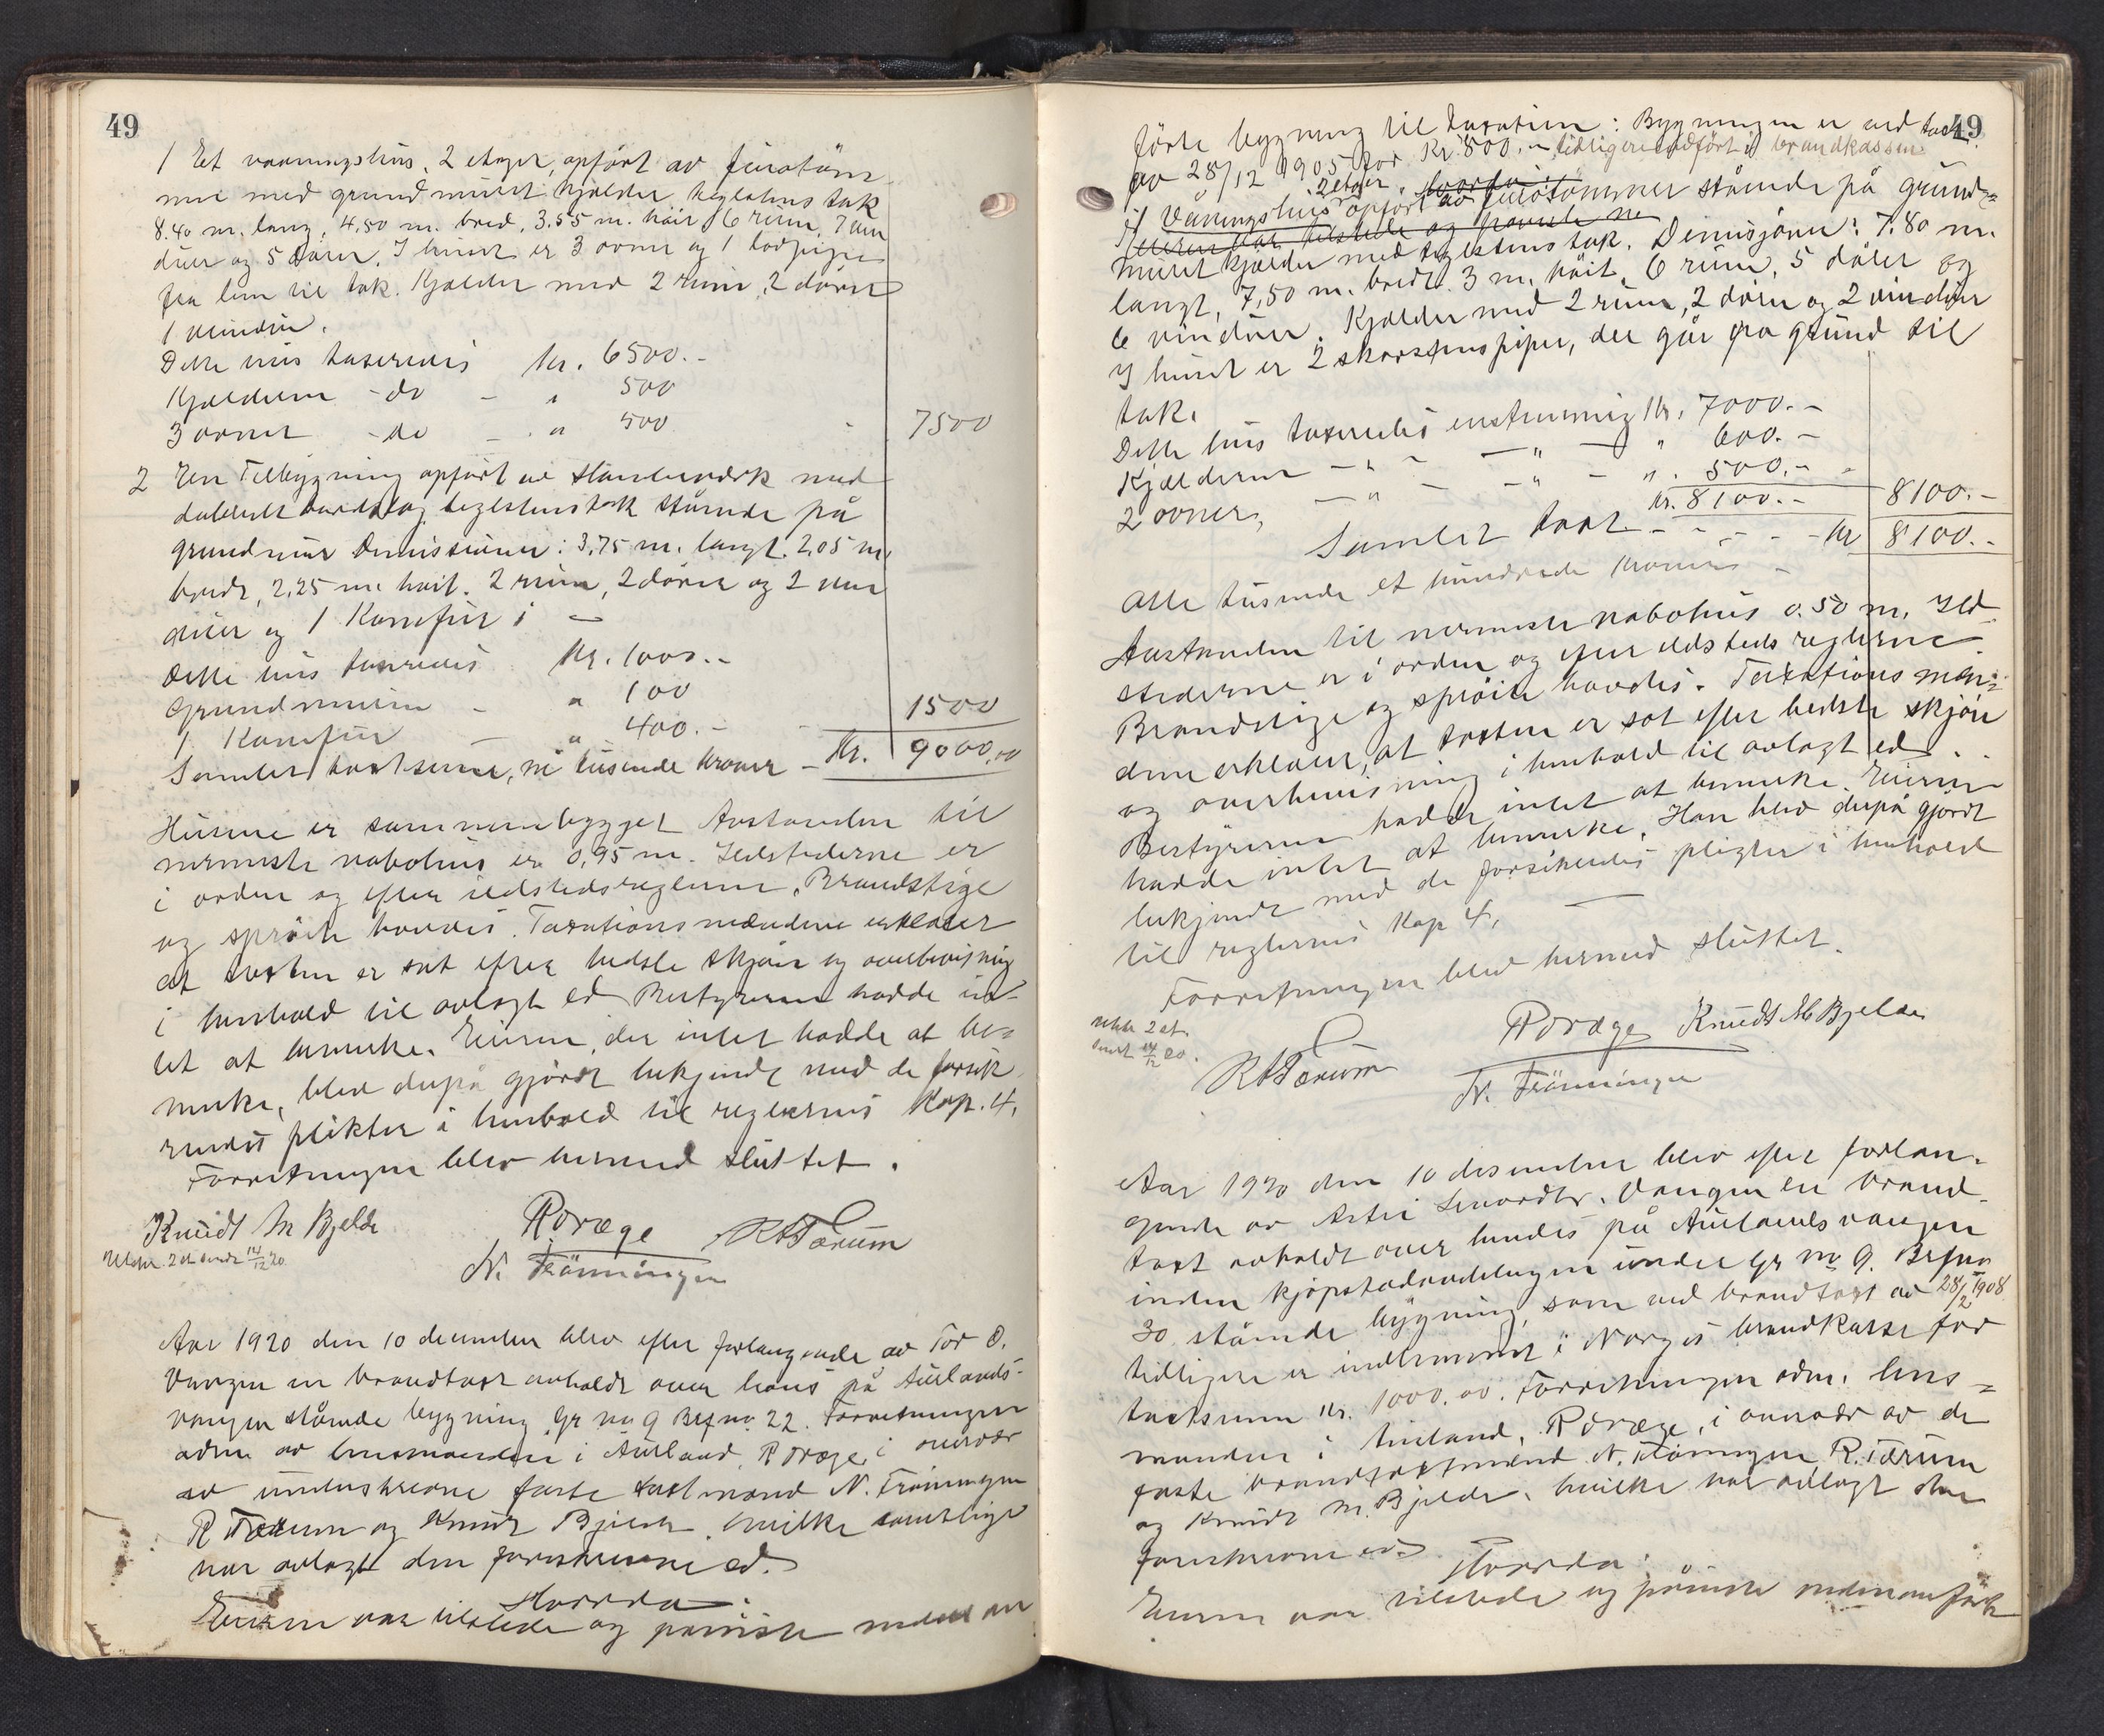 49
1 Et vaaningshus, 2 etager, opført av furutøm
mer med grundmuret kjælder teglstens tak
8.40 m. lang, 4.50 m. bred, 3.55 m. høit 6 rum, 7 vin
duer og 5 dører. I huset er 3 ovner og 1 
fra lem til tak. Kjælder med 2 rum, 2 dører
1 vindu.
Dette hus taxeredes kr. 6500.-
Kjælderen - do - " 500
3 ovner - do - " 500 7500
2 En Tilbygning opført av stavverk med
dobbelt bord og teglstenstak stående på
grundmur Dimissioner: 3,75 m. langt 2,05 m.
bredt, 2,25 m. høit. 2 rum, 2 dører og 2 vin
duer og 1 Komfur i -
Dette hus taxeredes kr. 1000.-
Grundmuren - " 100
1 Komfur - " 400.- 1500
Samlet taxtsum, ni tusende kroner - Kr. 9000,00
Husene er sammenbygget Avstanden til
nærmeste nabohus er 0,95 m. Ildstederne er
i orden og efter ildstedsreglerne. Brandstige
og sprøite havdes. Taxationsmændene erklærer
at taxten er sat efter bedste skjøn og overbevisning
i henhold til avlagt ed Bestyreren hadde in-
tet at bemerke. Eieren, der intet hadde at be=
merke, blev derpå gjordt bekjendt med de forsik
rendes plikter i henhold til reglernes Kap. 4.
Forretningen blev hermed sluttet.
Knudt M Bjelde R Oræge R A Tærum
Utskr. 2 et sendt 14/12 20. N. Frönningen
Aar 1920 den 10 december blev efter forlangende av Tor O.
Vangen en brandtaxt avholdt over hans på Aurlands-
vangen stående bygning, Gr no 9 Brno 22. Forretningen
adm av lensmanden i Aurland, R Oræge, i overvær
av underskrevne faste taxtmænd N. Frönningen
R Tærum og Knudt Bjelde, hvilke samtlige
har avlagt den foreskrevne ed.
Hvorda:
Eieren var tilstede og påviste nedenan
49
førte bygning til taxation: Bygningen er ved taxt
av 28/12 1905 for Kr. 800.- tidligere indført i brandkassen
1 Våningshus 2 etager opført av furutømmer stående på grund=
Eieren var tilstede og påviste ne
muret kjælder med teglstens tak. Dimisjoner: 7.80 m.
langt, 7,50 m. bredt. 3 m. høit, 6 rum, 5 dører og
6 vinduer. Kjælder med 2 rum, 2 dører og 2 vinduer
I huset er 2 skorstenspiper, der går fra grund til
tak.
Dette hus taxeredes enstemmig kr. 7000.-
Kjælderen - " - " - " 600.-
2 ovner, - " - " - " 500.-
kr. 8100.- 8100.-
Samlet taxt - - - - kr 8100.-
Otte tusende et hundrede kroner -
Avstanden til nærmeste nabohus 0.50 m. Ild-
stederne er i orden og efter ildstedsreglerne.
Brandstige og sprøite havdes. Taxationsmæn=
dene erklærer, at taxten er sat efter bedste skjøn
og overbevisning i henhold til avlagt ed.
Bestyreren hadde intet at bemerke. Eieren
hadde intet at bemerke. Han blev derpå gjordt
bekjendt med de forsikredes pligter i henhold
til reglernes Kap 4.
Forretningen blev hermed sluttet.
Utskr 2 et.
sendt 14/12 20.
R A Tærum R Oræge Knudt M Bjelde
N. Frönningen
Aar 1920 den 10 desember blev efter forlan-
gende av Vangen en brand-
taxt avholdt over hendes på Aurlandsvangen
inden kjøpstadavdelingen under Gr no 9. Brno
30 stående bygning, som ved brandtaxt av 28/2 1908
tidligere er indlemmet i Norges brandkasse for
taxtsum kr. 1000.00. Forretningen adm. lens=
manden i Aurland, R Oræge, i overvær av de
faste brandtaxtmænd N. Frönningen, R. Tærum
og Knudt M. Bjelde, hvilke har avlagt den
foreskrevne ed.
Hvorda:
Eieren var tilstede og påviste nedenanførte